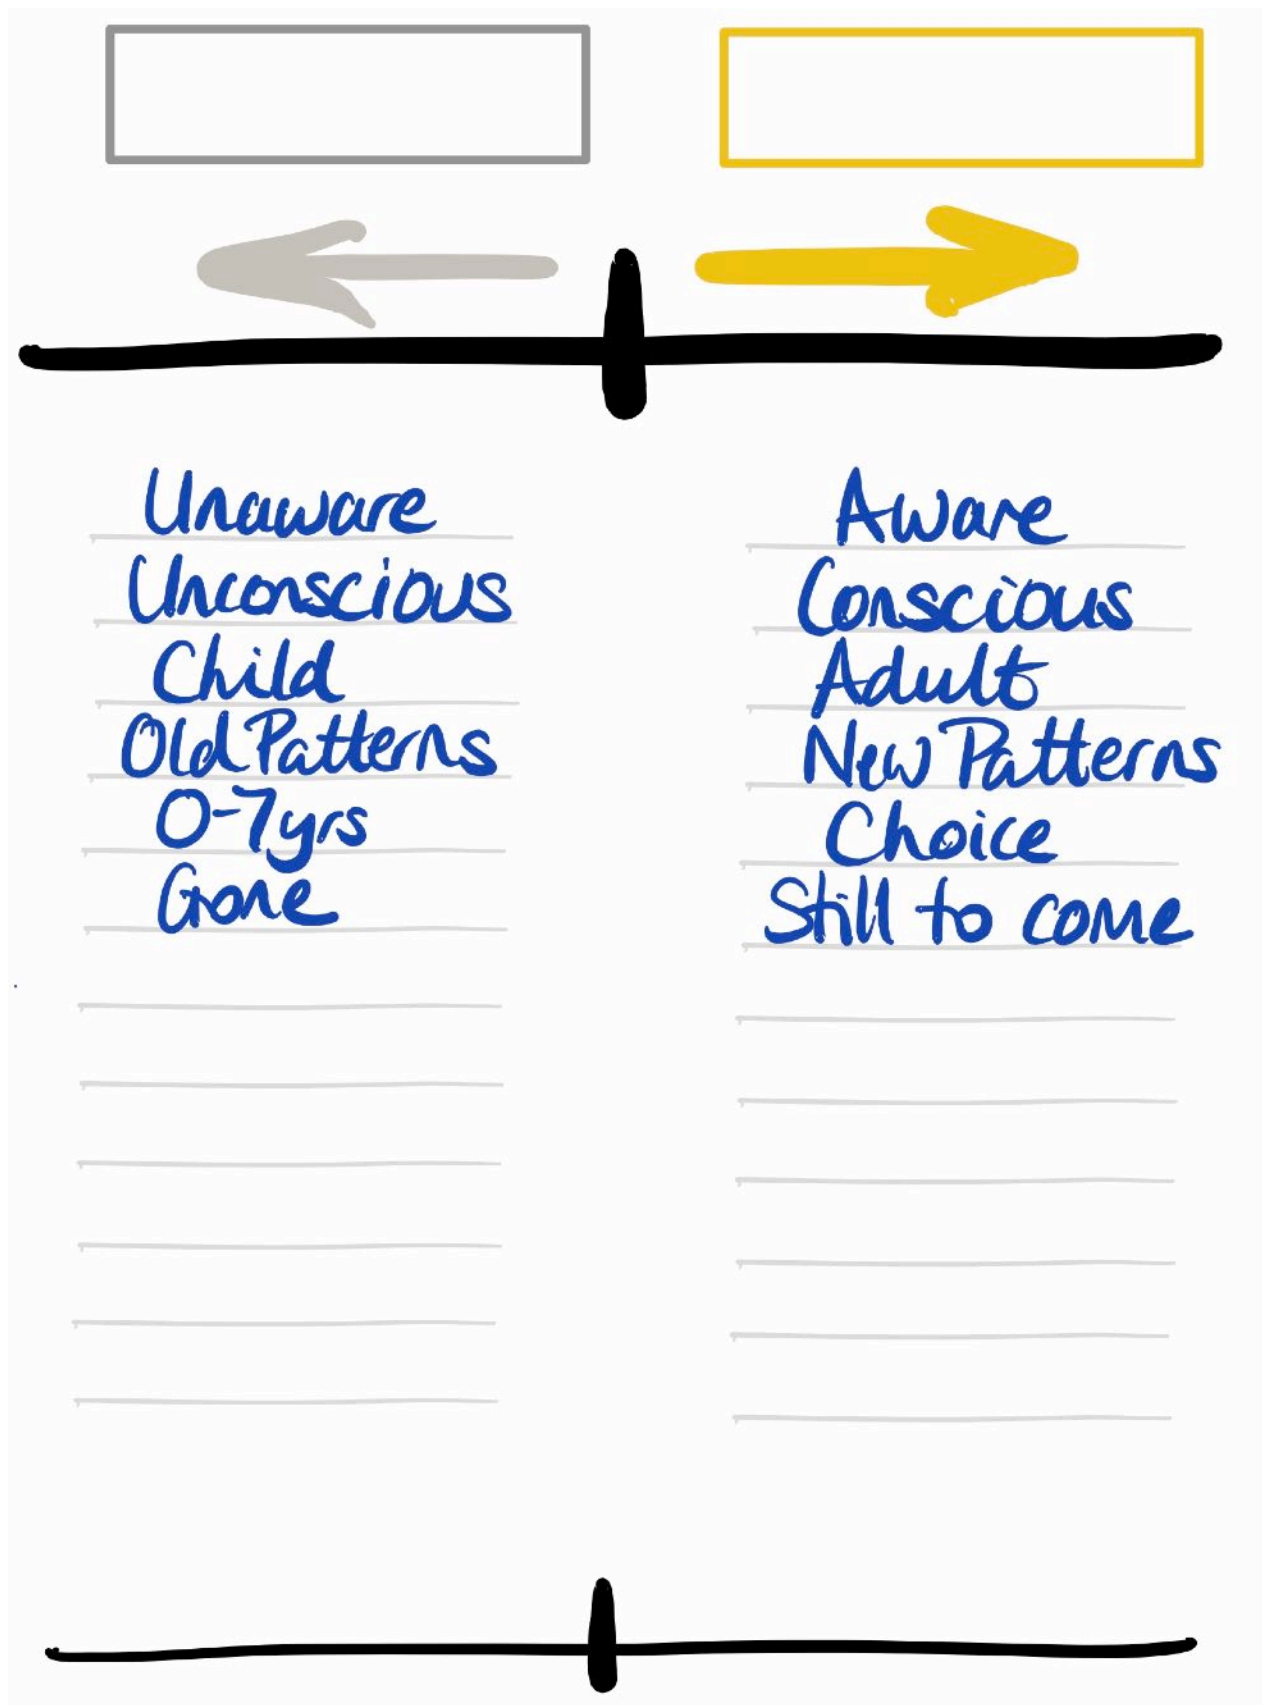 Unaware
Unconscious
Child
Old Patterns
0-7yrs
Gone
Aware
Conscious
Adult
New Patterns
Choice
Still to come